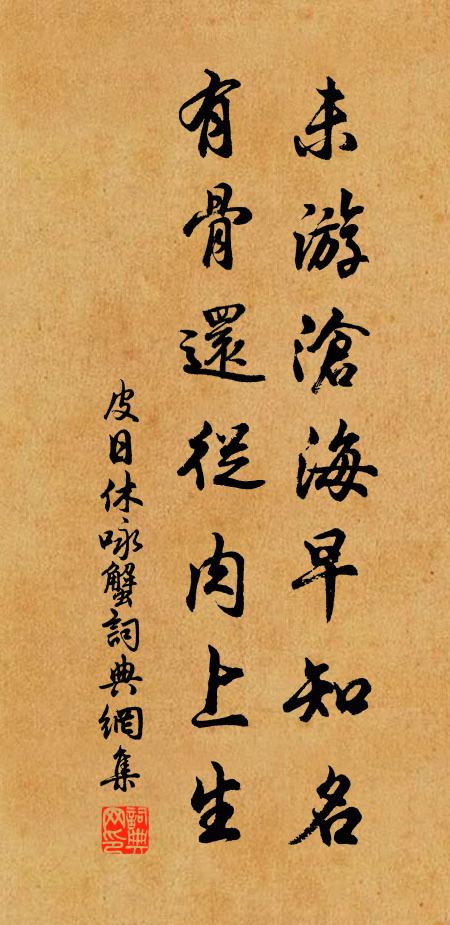 未游滄海早知名
有骨還從肉上生
皮日休咏蟹詞典網集
詞典网印